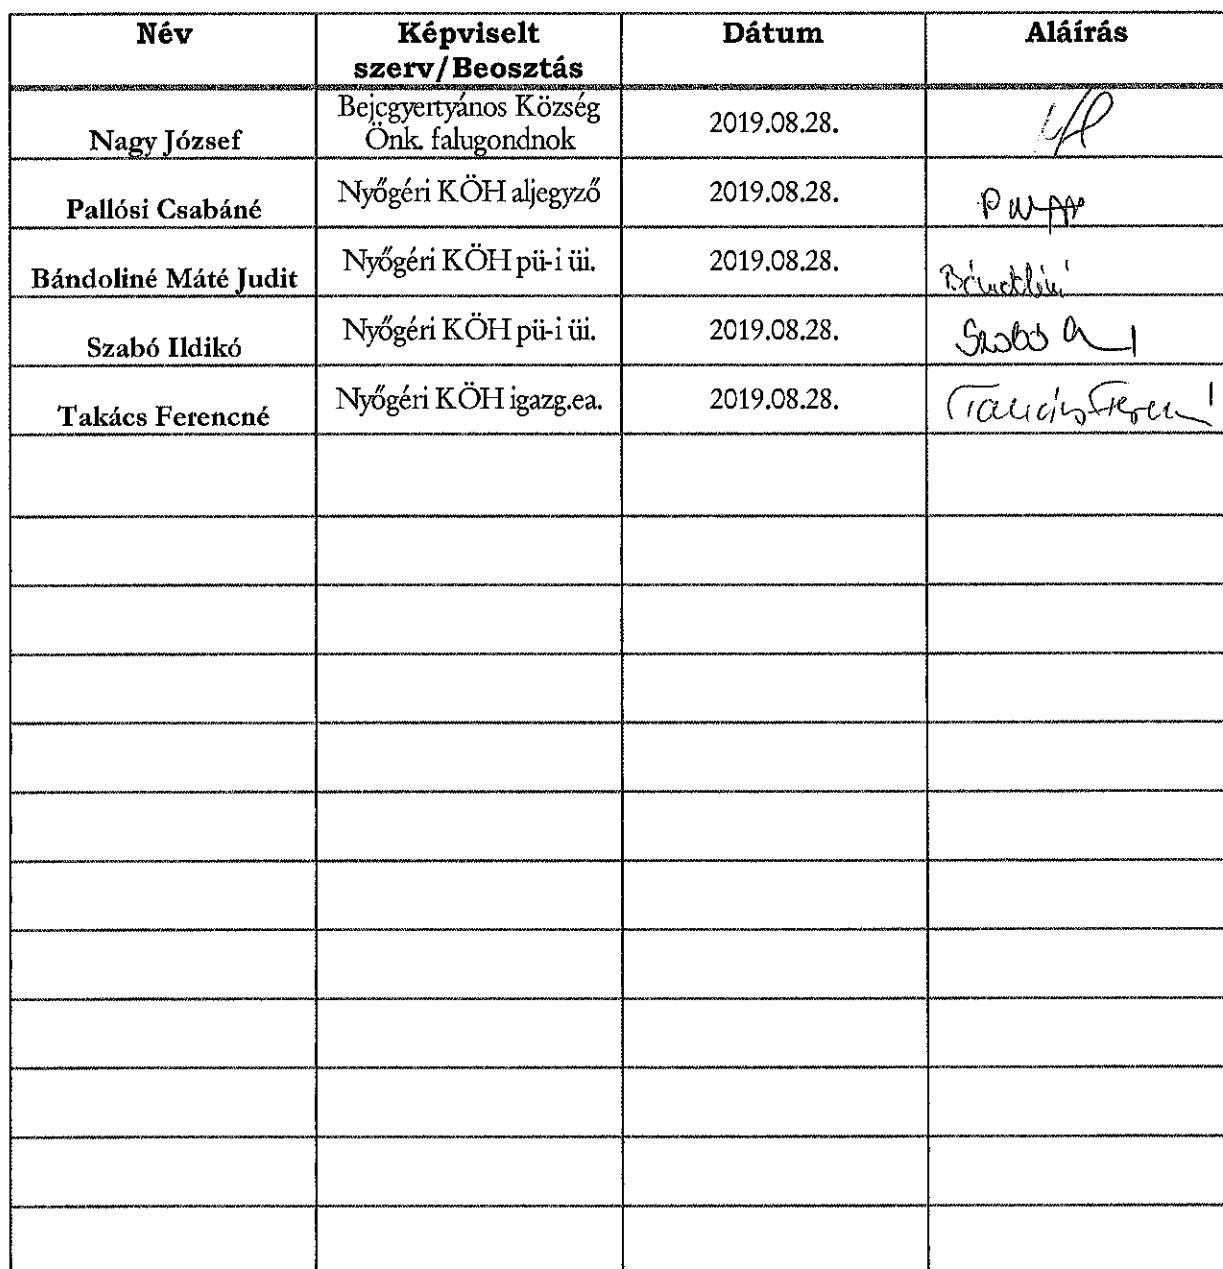 Név Képviselt Dátum Aláírás
szerv/Beosztás
Bejcgyertyános Község
Nagy József Önk. falugondnok 2019.08.28.
Pallósi Csabáné Nyőgéri KÖH aljegyző 2019.08.28.
Bándoliné Máté Judit Nyőgéri KÖH pü-i üi. 2019.08.28.
Szabó Ildikó Nyőgéri KÖH pü-i üi. 2019.08.28. Szabó
Takács Ferencné Nyőgéri KÖH igazg.ea. 2019.08.28. Takács